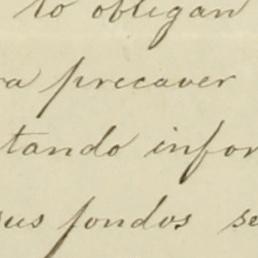 to obligan
ra precaver
tando infor
sus fondos se